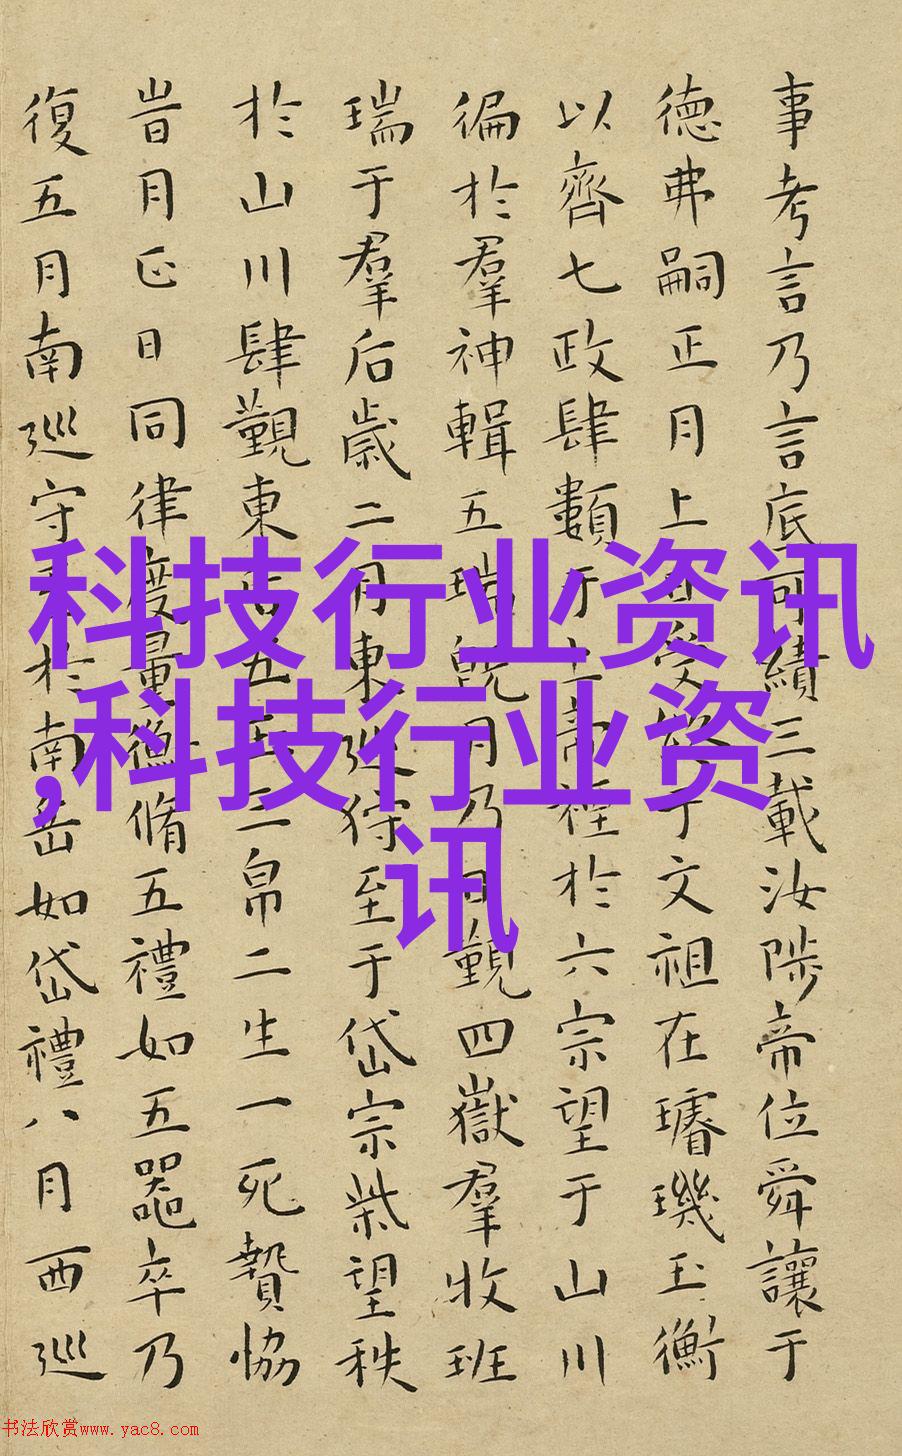 事考言乃言底可績三載汝陟帝位舜讓于
德弗嗣正月上日受終于文祖在璿璣玉衡
以齊七政肆類于上帝禋於六宗望于山川
徧於羣神輯五瑞旣月乃日覲四嶽羣牧班
瑞于羣后歲二月東巡狩至于岱宗柴望秩
於山川肆覲東后五玉三帛二生一死贄協
旹月正日同律度量衡脩五禮如五器卒乃
復五月南巡守至於南岳如岱禮八月西巡
科技行业资讯
,科技行业资
讯
书法欣赏www.yac8.com